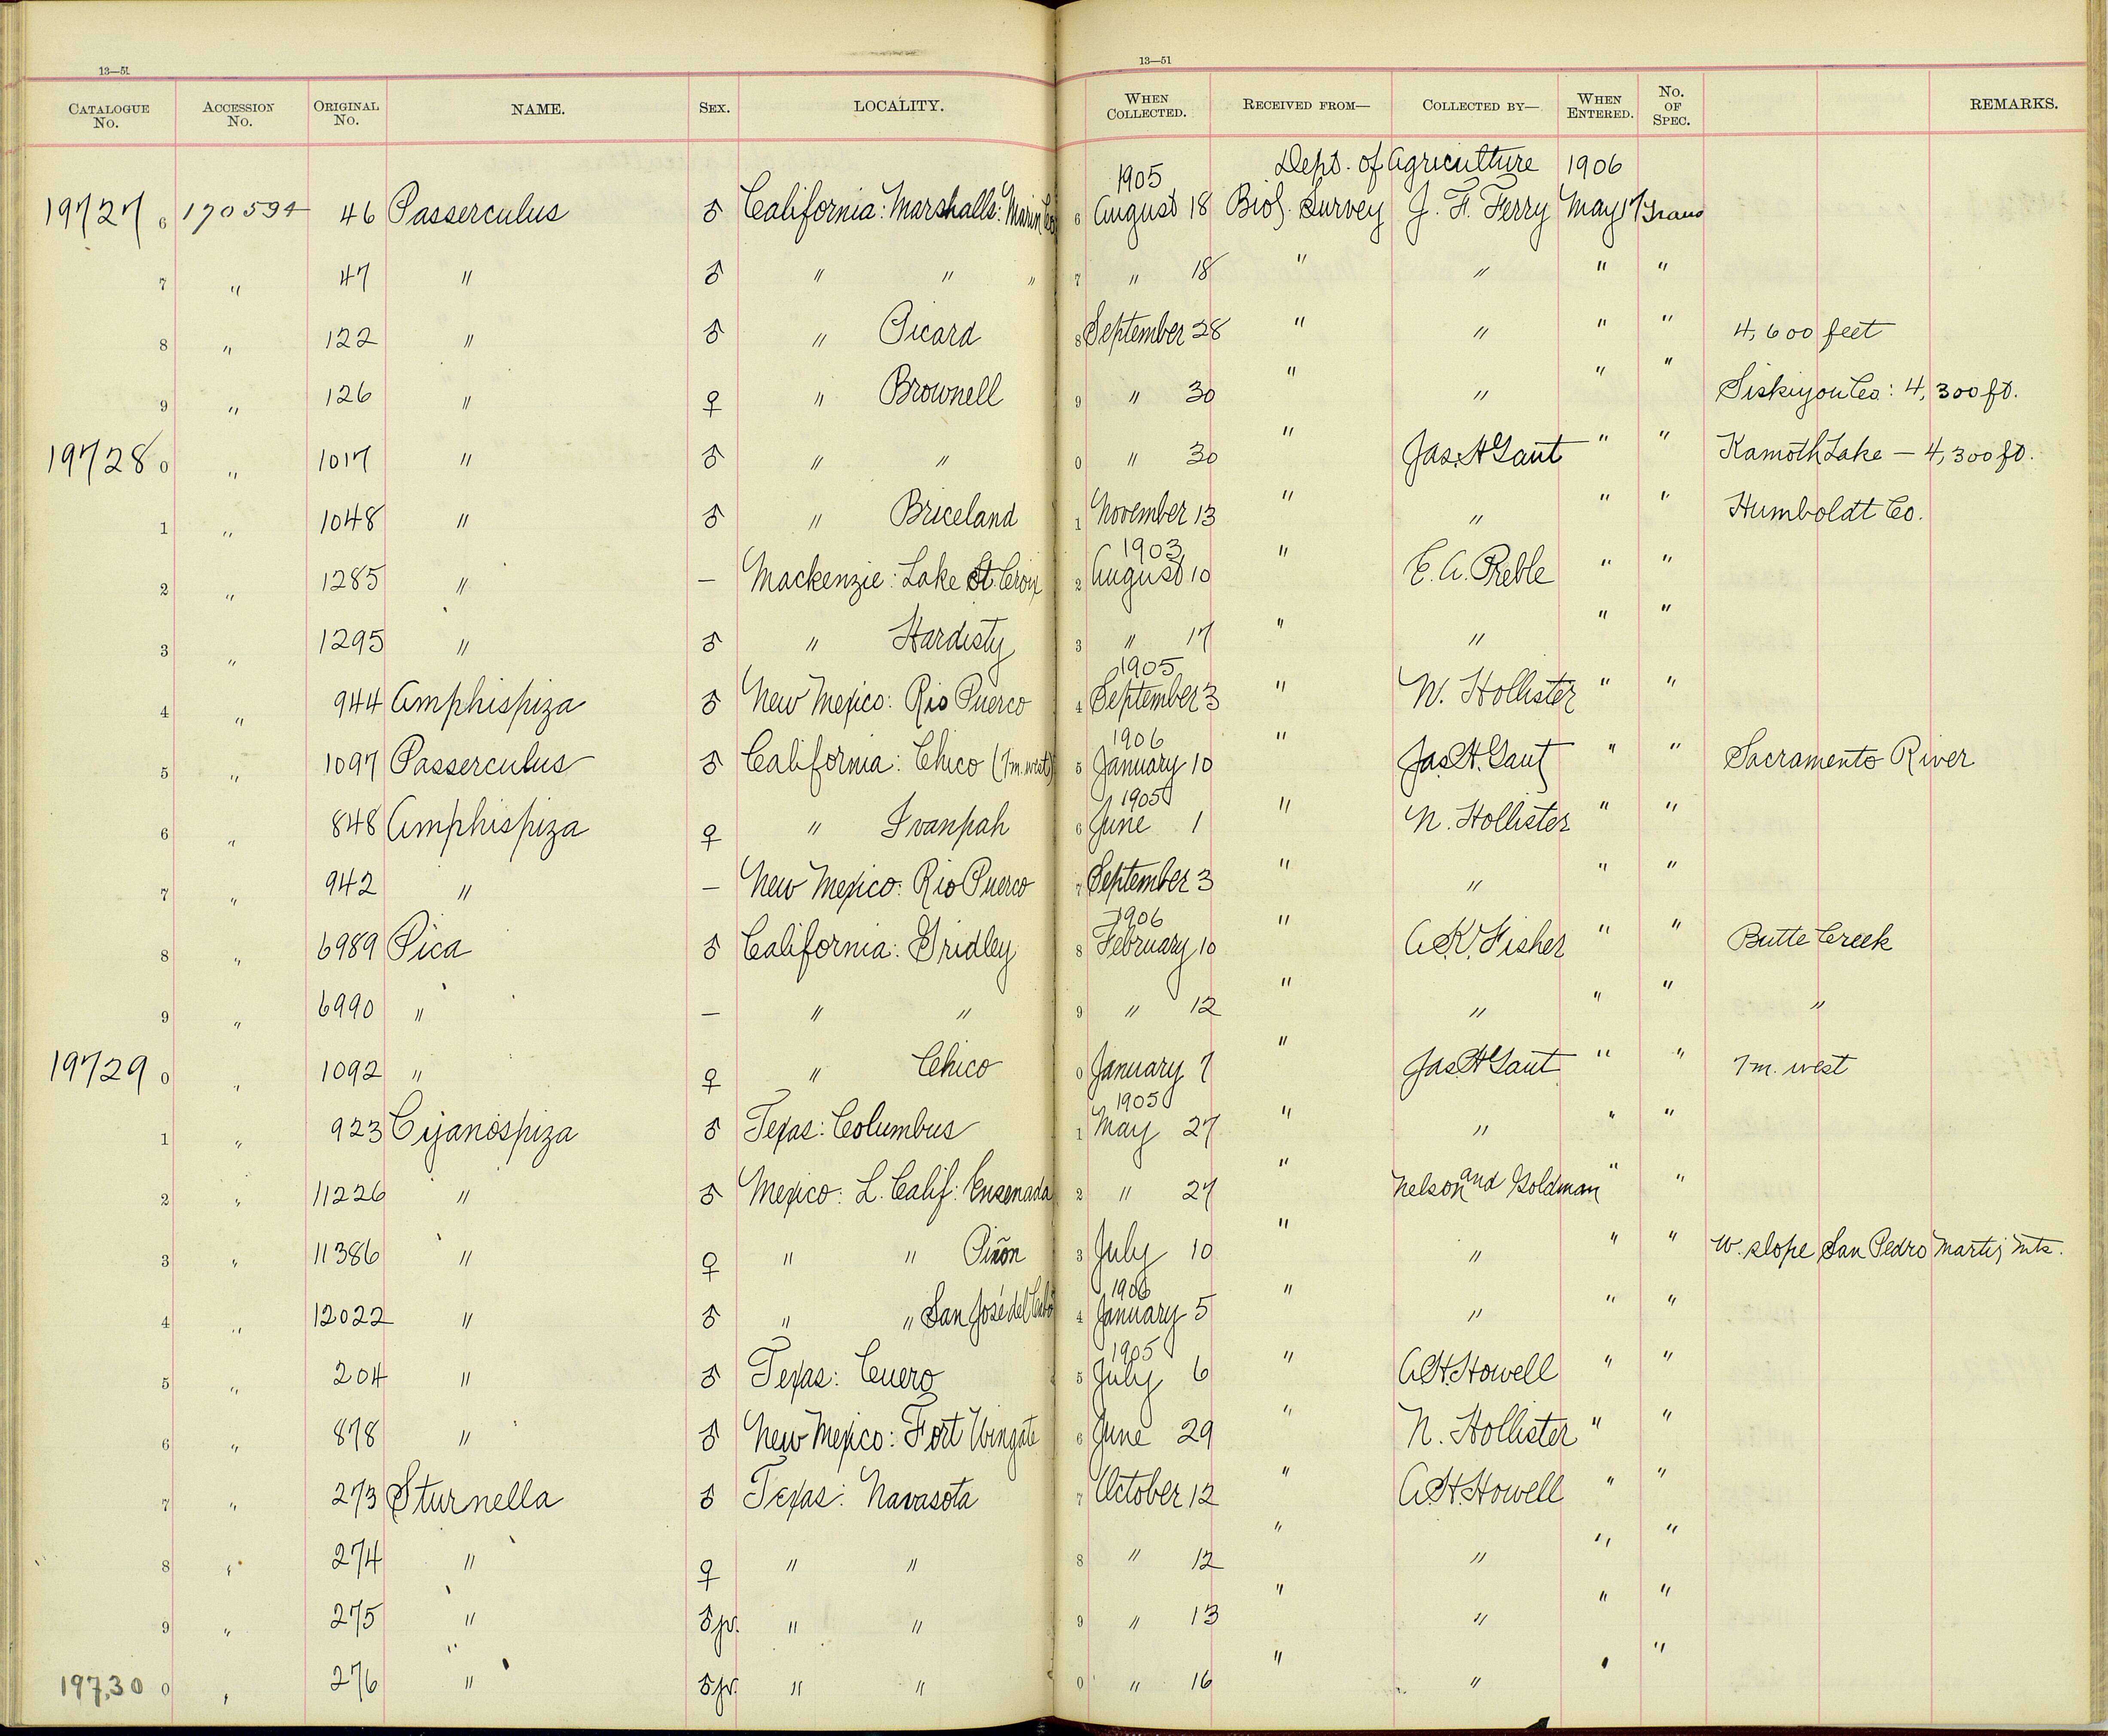 13—51 13—51
CATALOGUE No. ACCESSION No. ORIGINAL No. NAME. SEX. LOCALITY. WHEN COLLECTED. RECEIVED FROM— COLLECTED BY— WHEN ENTERED. No. OF SPEC. REMARKS.
1905 Dept. of Agriculture 1906
19727 6 170594 46 Passerculus ♂ California: Marshalls: Marin Co 6 August 18 Biol. Survey J. F. Ferry May 17 Trans
7 " 47 " ♂ " " " 7 " 18 " " " "
8 " 122 " ♂ " Picard 8 September 28 " " " " 4,600 feet
9 " 126 " ♀ " Brownell 9 " 30 " " " " Siskiyou Co: 4,300 ft.
19728 0 " 1017 " ♂ " " 0 " 30 " Jas. H Gaut " " Kamoth Lake — 4,300 ft.
1 " 1048 " ♂ " Briceland 1 November 13 " " " " Humboldt Co.
1903
2 " 1285 " — Mackenzie: Lake St. Croix 2 August 10 " E. A. Preble " "
3 " 1295 " ♂ " Hardisty 3 " 17 " " " "
1905
4 " 944 Amphispiza ♂ New Mexico: Rio Puerco 4 September 3 " N. Hollister " "
1906
5 " 1097 Passerculus ♂ California: Chico (7m. west) 5 January 10 " Jas. H. Gaut " " Sacramento River
1905
6 " 848 Amphispiza ♀ " Ivanpah 6 June 1 " N. Hollister " "
7 " 942 " — New Mexico: Rio Puerco 7 September 3 " " " "
1906
8 " 6989 Pica ♂ California: Gridley 8 February 10 " A. K. Fisher " " Butte Creek
9 " 6990 " — " " 9 " 12 " " " " "
19729 0 " 1092 " ♀ " Chico 0 January 7 " Jas. H Gaut " " 7m. west
1905
1 " 923 Cyanospiza ♂ Texas: Columbus 1 May 27 " " " "
2 " 11226 " ♂ Mexico: L. Calif: Ensenada 2 " 27 " Nelson and Goldman " "
3 " 11386 " ♀ " " Piñon 3 July 10 " " " " W. slope San Pedro Martir Mts.
1906
4 " 12022 " ♂ " " San José del Cabo 4 January 5 " " " "
1905
5 " 204 " ♂ Texas: Cuero 5 July 6 " A. H. Howell " "
6 " 878 " ♂ New Mexico: Fort Wingate 6 June 29 " N. Hollister " "
7 " 273 Sturnella ♂ Texas: Navasota 7 October 12 " A. H. Howell " "
8 " 274 " ♀ " " 8 " 12 " " " "
9 " 275 " ♂ jv. " " 9 " 13 " " " "
197,30 0 " 276 " ♂ jv. " " 0 " 16 " " " "